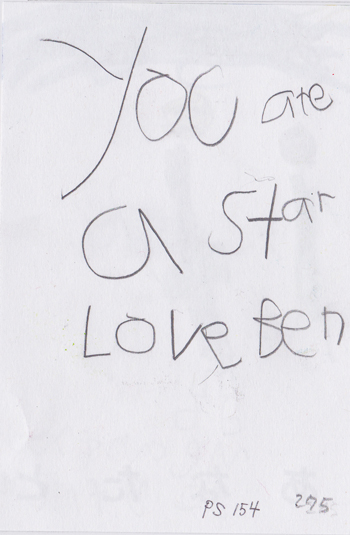 You are
a star
Love Ben
PS 154 275